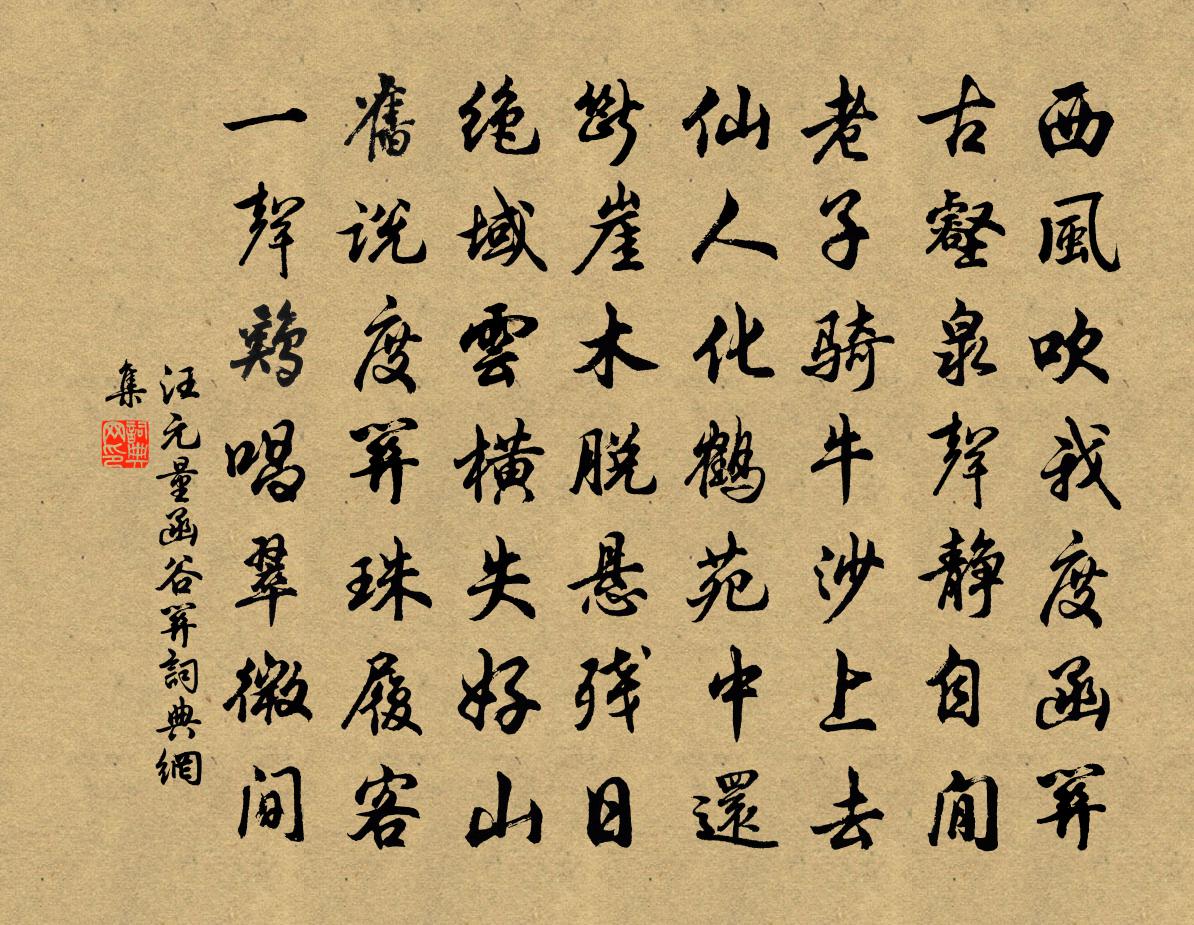 西風吹我度函関
古壑泉聲静自閒
老子騎牛沙上去
仙人化鶴苑中還
斷崖木脱懸残日
絶域雲横失好山
舊説度関珠履客
一聲鷄唱翠微間
汪元量函谷関詞典網
集
詞典网印